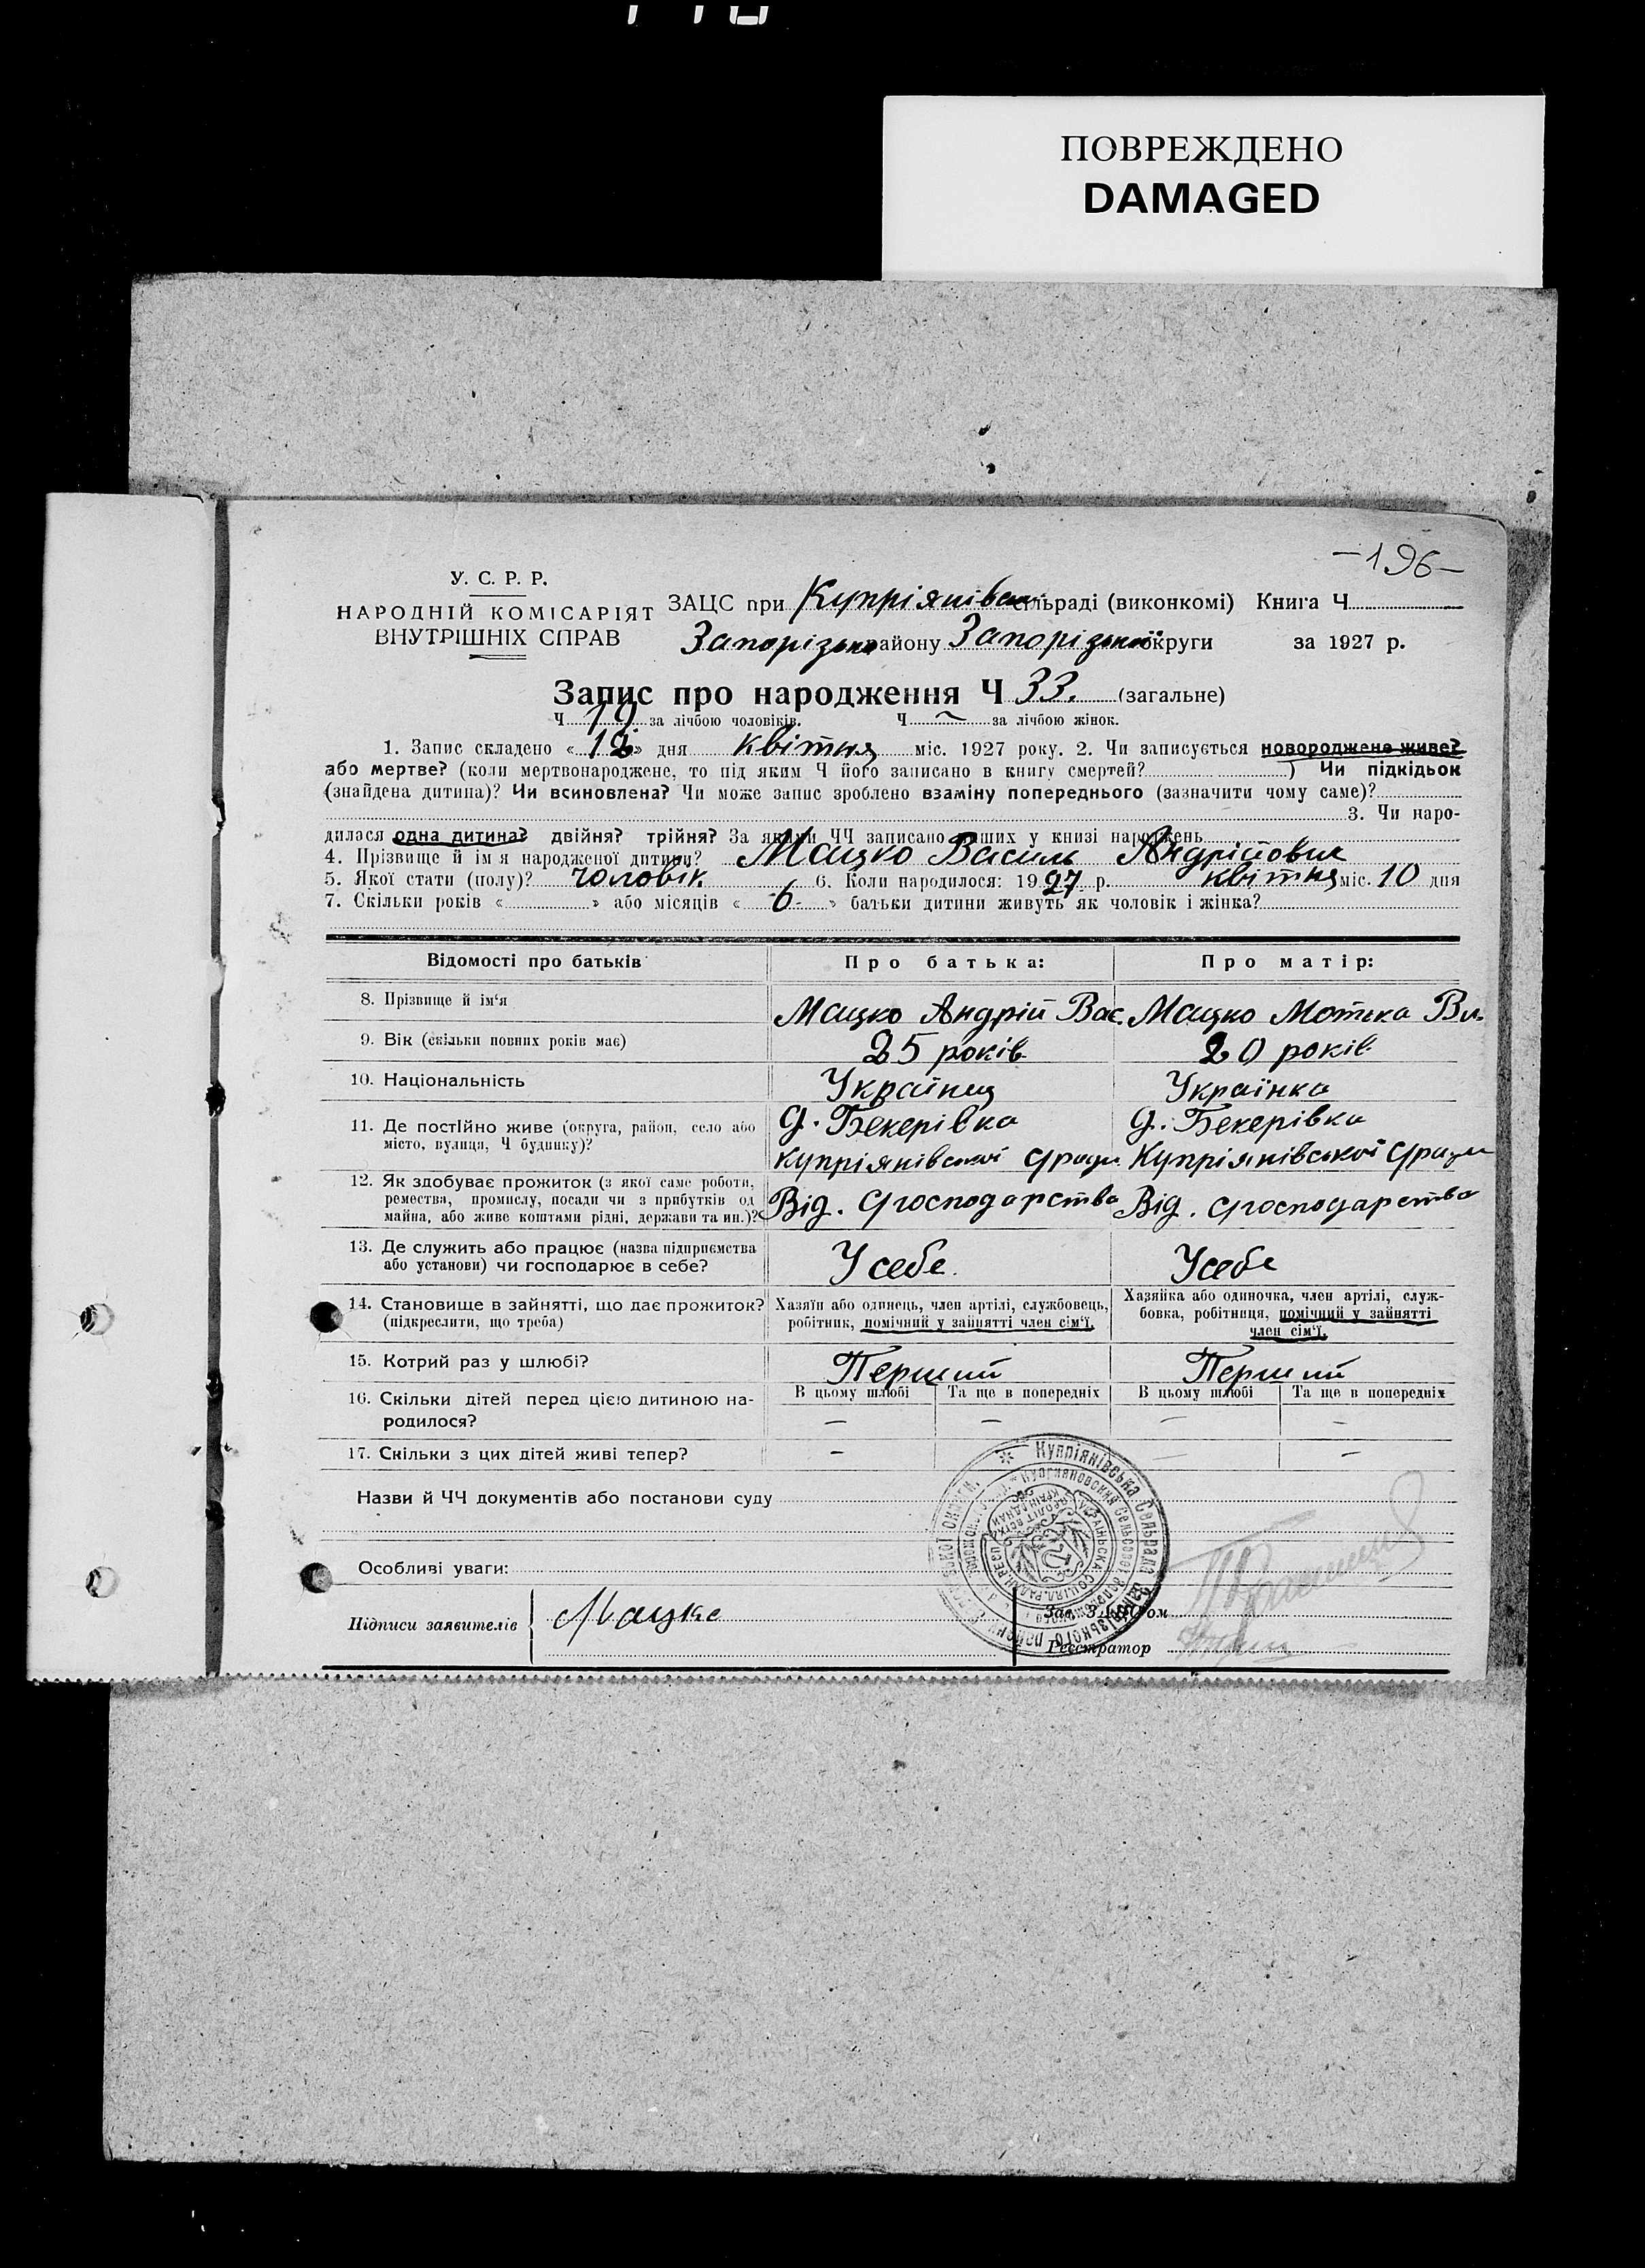 ПОВРЕЖДЕНО
DAMAGED
—196—
У. С. Р. Р.
НАРОДНІЙ КОМІСАРІЯТ
ВНУТРІШНІХ СПРАВ
ЗАЦС при Купріянівській сільраді (виконкомі) Книга Ч
Запорізького району Запорізької округи за 1927 р.
Запис про народження Ч 33. (загальне)
Ч 19 за лічбою чоловіків. Ч — за лічбою жінок.
1. Запис складено « 12 » дня квітня міс. 1927 року. 2. Чи записується новороджене живе?
або мертве? (коли мертвонароджене, то під яким Ч його записано в книгу смертей? ) Чи підкідьок
(знайдена дитина)? Чи всиновлена? Чи може запис зроблено взаміну попереднього (зазначити чому саме)?
3. Чи наро-
дилася одна дитина? двійня? трійня? За якими ЧЧ записано інших у книзі народжень
4. Прізвище й ім я народженої дитини? Мацко Василь Андрійович
5. Якої стати (полу)? чоловік. 6. Коли народилося: 1927 р. квітня міс. 10 дня
7. Скільки років « » або місяців « 6 » батьки дитини живуть як чоловік і жінка?
Відомості про батьків Про батька: Про матір:
8. Прізвище й ім‘я Мацко Андрій Вас. Мацко Мотька
9. Вік (скільки повних років має) 25 років 20 років
10. Національність Українец Українка
11. Де постІйно живе (округа, район, село або місто, вулиця, Ч будинку)?
д. Бекерівка д. Бекерівка
Купріянівської с/ради Купріянівської с/ради
12. Як здобуває прожиток (з якої саме роботи, ремества, промислу, посади чи з прибутків од майна, або живе коштами рідні, держави та ин.)?
Від. с/господарства Від. с/господарства
13. Де служить або працює (назва підприємства або установи) чи господарює в себе? У себе. У себе
14. Становище в зайнятті, що дає прожиток? (підкреслити, що треба)
Хазяїн або одинець, член артілі, службовець, робітник, помічний у зайнятті член сім‘ї.
Хазяйка або одиночка, член артілі, служ-
бовка, робітниця, помічний у зайнятті
член сім‘ї.
15. Котрий раз у шлюбі? Перший Перший
В цьому шлюбі Та ще в попередніх В цьому шлюбі Та ще в попередніх
16. Скільки дітей перед цією дитиною на-
родилося? — — — —
17. Скільки з цих дітей живі тепер? — — —
Назви й ЧЧ документів або постанови суду
Особливі уваги:
Купріянівська Сельрада Запорізького району
Підписи заявителів Мацко
Зав. ЗАЦС‘ом
Реєстратор